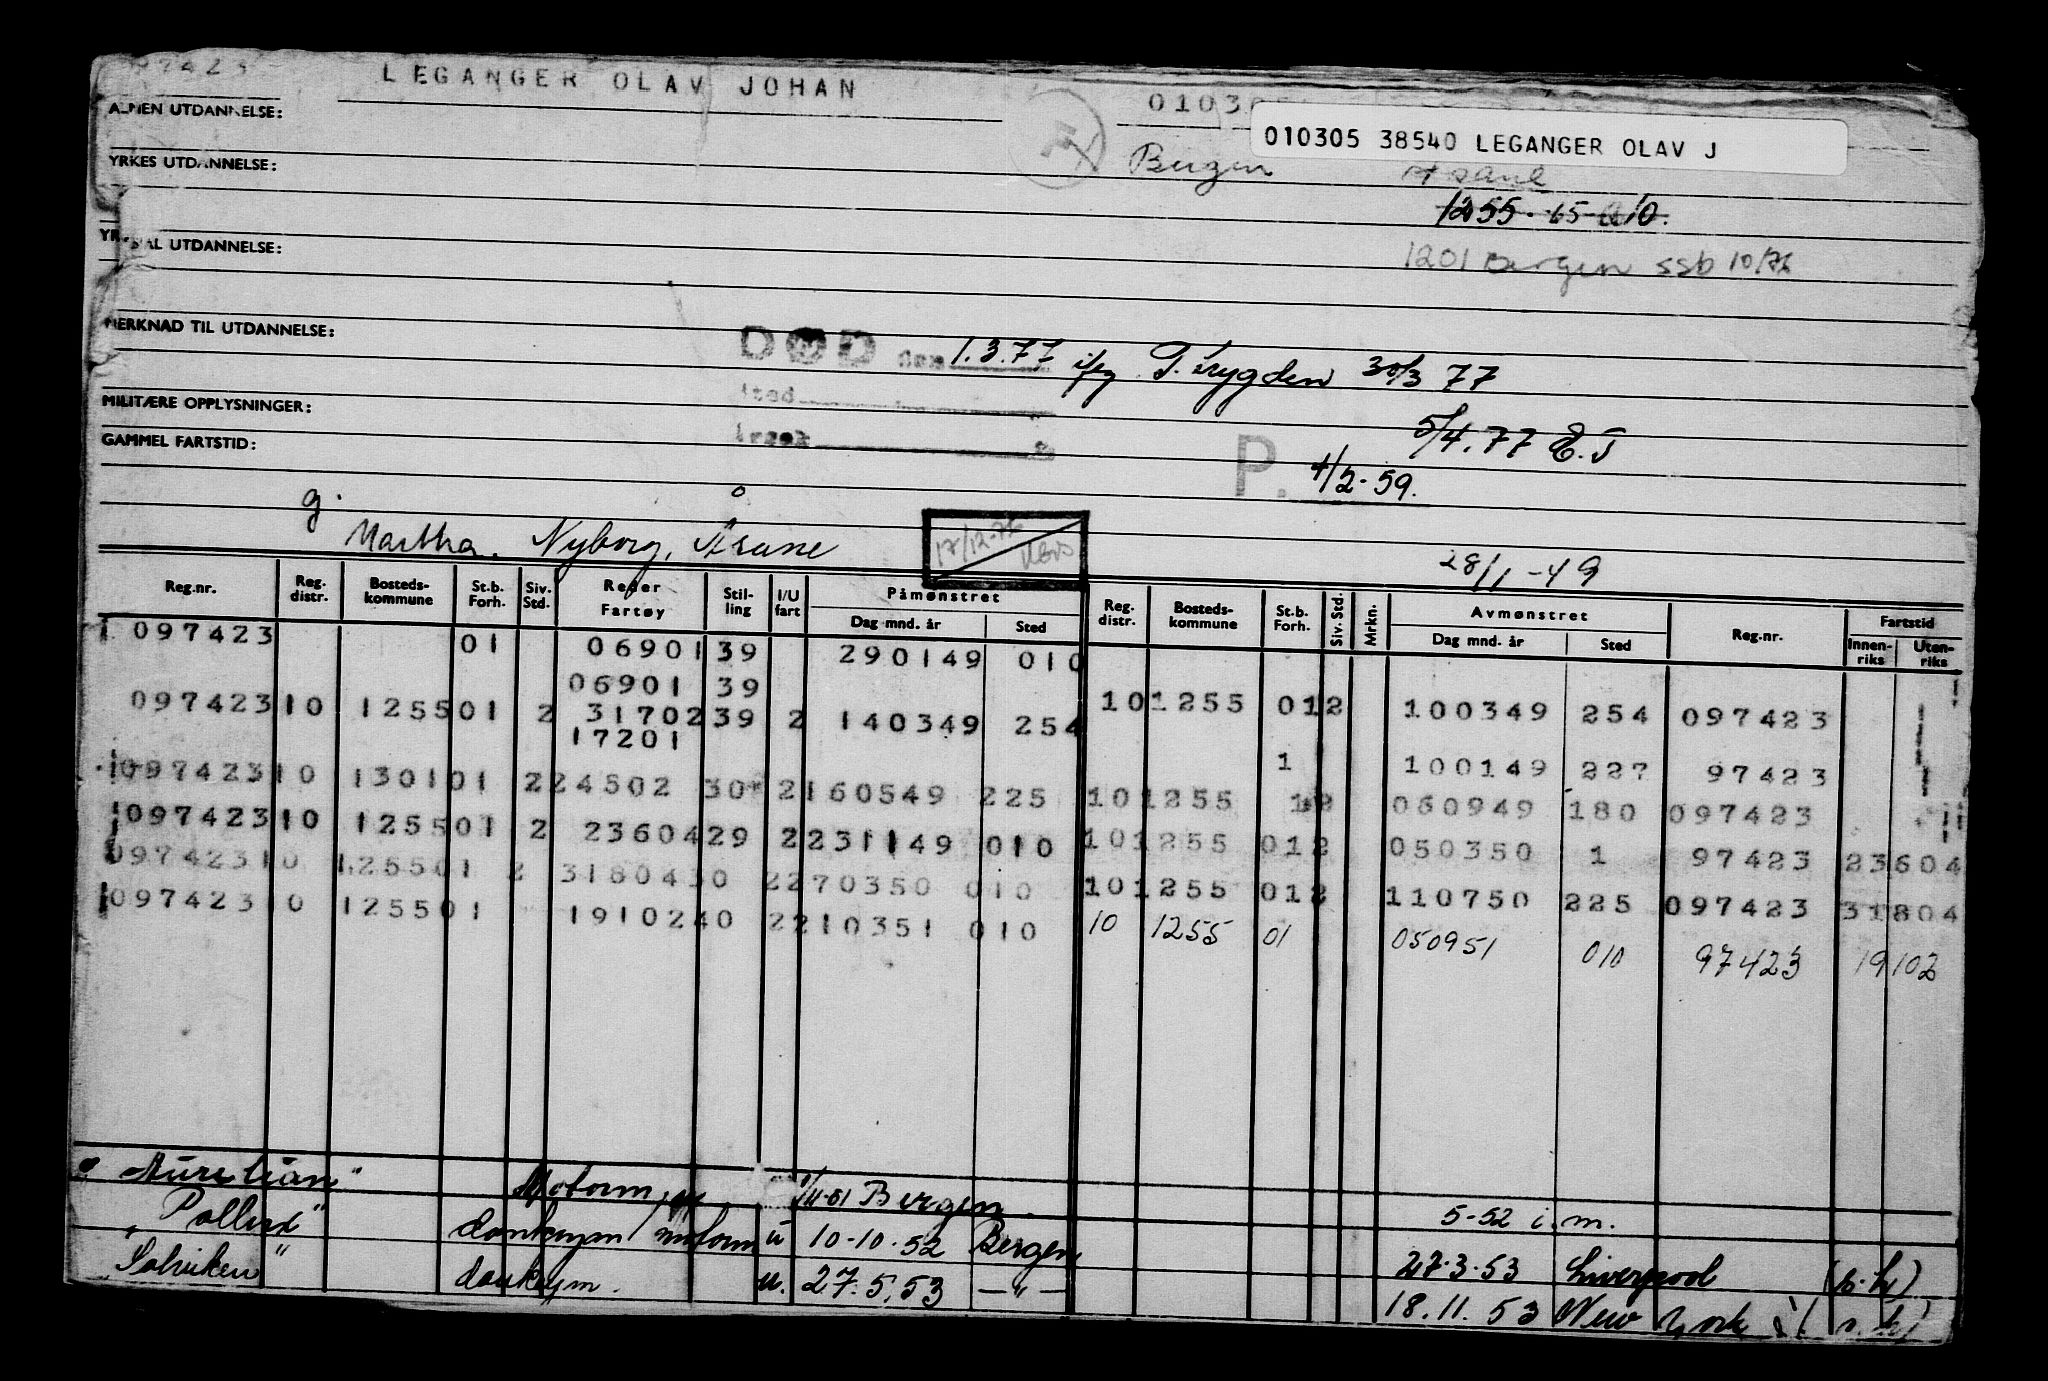 97423 LEGANGER OLAV JOHAN
ALMEN UTDANNELSE:
0103
010305 38540 LEGANGER OLAV J
YRKES UTDANNELSE:
Bergen Åsane
1255-
1201 Bergen ssb 10/76
UTDANNELSE:
MERKNAD TIL UTDANNELSE:
DØD den 1.3.77 iflg Trygden 30/3 77
sted
MILITÆRE OPPLYSNINGER:
5/4.77 E.J
GAMMEL FARTSTID:
P. 4/2-59.
g.
Martha. Nyborg, Åsane
17/12-76
28/1-49
Reg.nr. Reg. distr. Bosteds-kommune St.b. Forh. Siv. Std. Reder Fartøy Stil-ling I/U fart Påmønstret Dag mnd. år Sted Reg. distr. Bosteds-kommune St.b. Forh. Siv. Std. Mrkn. Avmønstret Dag mnd. år Sted Reg.nr. Fartstid Innen-riks Uten-riks
097423 01 06901 39 290149 010
06901 39 10 1255 01 2 100349 254 097423
097423 10 1255 01 2 31702 39 2 140349 254
17201 1 100149 227 97423
097423 10 1301 01 2 24502 30 2 160549 225 10 1255 12 060949 180 097423
097423 10 1255 01 2 23604 29 2 231149 010 10 1255 01 2 050350 1 97423 23604
097423 10 1255 01 2 31804 30 2 270350 010 10 1255 01 2 110750 225 097423 31804
097423 10 1255 01 19102 40 2 210351 010 10 1255 01 050951 010 97423 19102
"Aurelian" Motorm. Bergen 5-52 i.m.
"Pollux" donkeym u 10-10-52 Bergen 27.3.53 Liverpool
"Solviken" donkeym. u. 27.5.53 —"— 18.11.53 New York